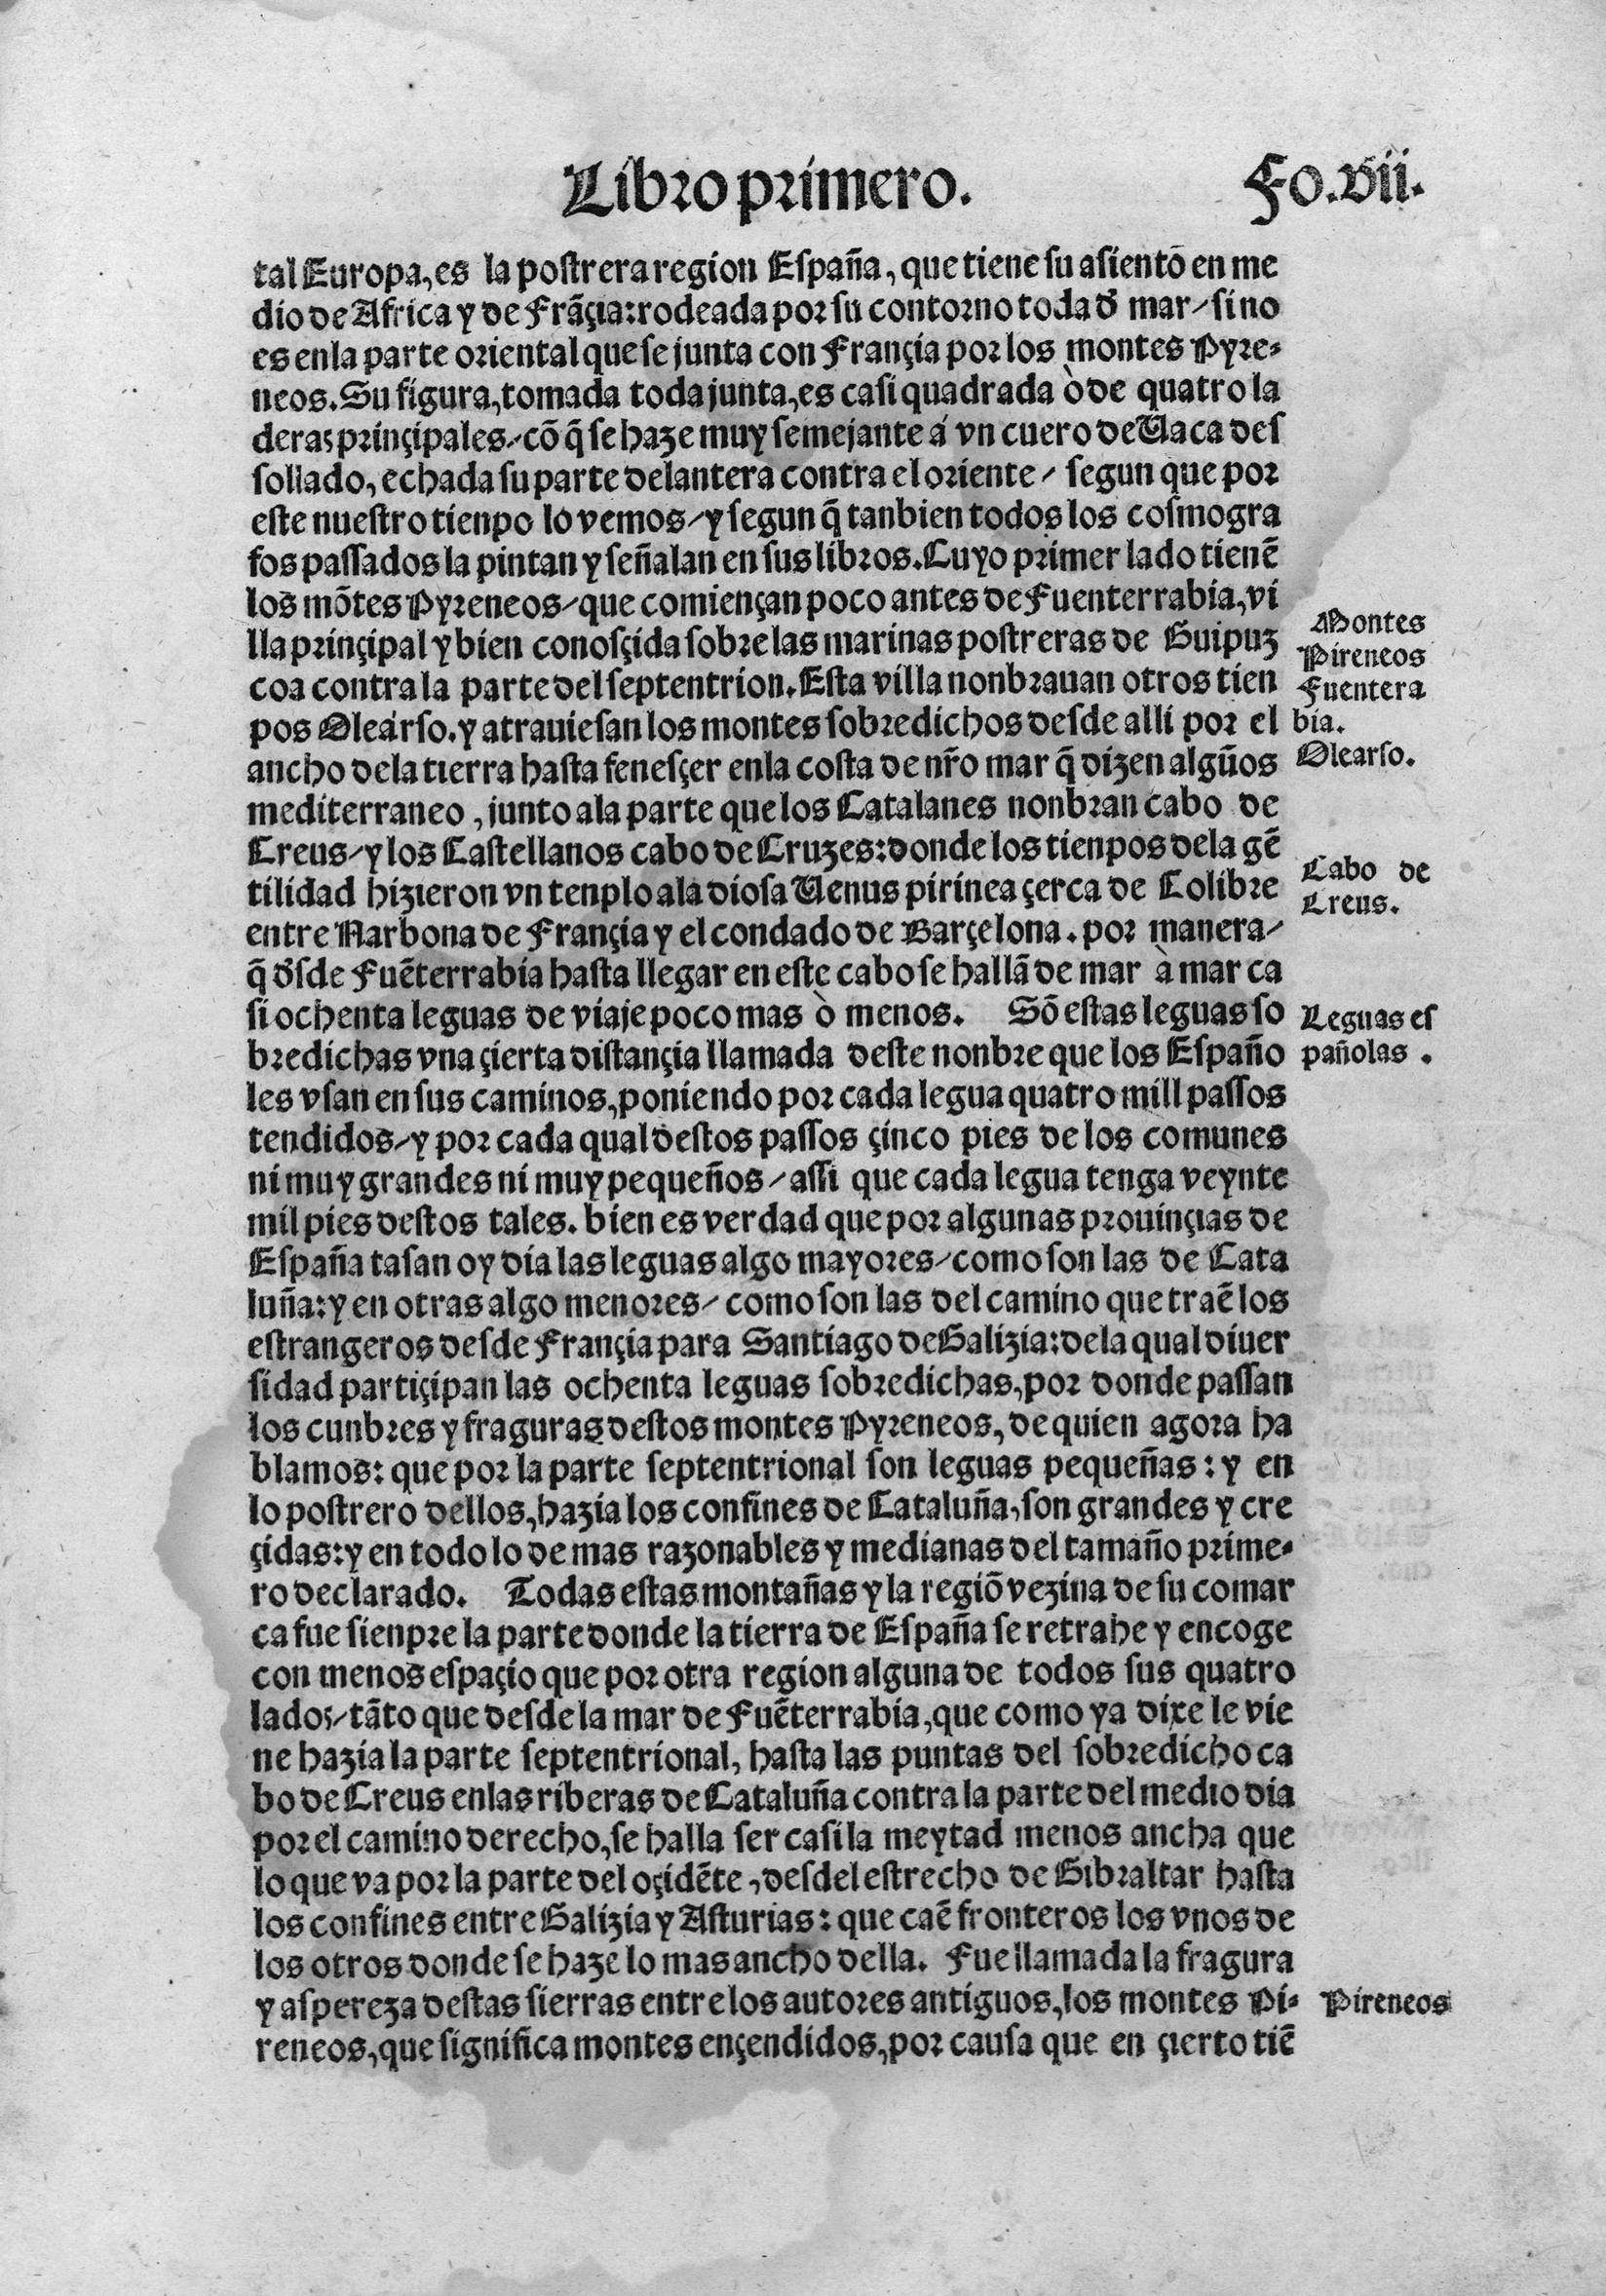 Libro primero.
Fo.vii.
tal Europa, es la postrera region España, que tiene su asientõ en me
dio de Africa y de Frãçia: rodeada por su contorno toda đ mar/ sino
es enla parte oriental que se junta con Françia por los montes Pyre-
neos. Su figura, tomada toda junta, es casi quadrada ò de quatro la
deras prinçipales/ cõ q̃ se haze muy semejante á vn cuero de Uaca des
sollado, echada su parte delantera contra el oriente/ segun que por
este nuestro tienpo lo vemos/ y segun q̃ tanbien todos los cosmogra
fos passados la pintan y señalan en sus libros. Cuyo primer lado tienẽ
los mõtes Pyreneos/ que comiençan poco antes de Fuenterrabia, vi
lla prinçipal y bien conosçida sobre las marinas postreras de Guipuz
coa contra la parte del septentrion. Esta villa nonbrauan otros tien
pos Olearso. y atrauiesan los montes sobredichos desde alli por el
ancho dela tierra hasta fenesçer enla costa de nr̃o mar q̃ dizen algũos
mediterraneo, junto ala parte que los Catalanes nonbran cabo de
Creus/ y los Castellanos cabo de Cruzes: donde los tienpos dela gẽ
tilidad hizieron vn tenplo ala diosa Uenus pirinea çerca de Colibre
entre Narbona de Françia y el condado de Barçelona. por manera/
q̃ đsde Fuẽterrabia hasta llegar en este cabo se hallã de mar à mar ca
si ochenta leguas de viaje poco mas ò menos. Sõ estas leguas so
bredichas vna çierta distançia llamada deste nonbre que los Españo
les vsan en sus caminos, poniendo por cada legua quatro mill passos
tendidos/ y por cada qual destos passos çinco pies de los comunes
ni muy grandes ni muy pequeños/ assi que cada legua tenga veynte
mil pies destos tales. bien es verdad que por algunas prouinçias de
España tasan oy dia las leguas algo mayores/ como son las de Cata
luña: y en otras algo menores/ como son las del camino que traẽ los
estrangeros desde Françia para Santiago de Galizia: dela qual diuer
sidad partiçipan las ochenta leguas sobredichas, por donde passan
los cunbres y fraguras destos montes Pyreneos, de quien agora ha
blamos: que por la parte septentrional son leguas pequeñas: y en
lo postrero dellos, hazia los confines de Cataluña, son grandes y cre
çidas: y en todo lo de mas razonables y medianas del tamaño prime-
ro declarado. Todas estas montañas y la regiõ vezina de su comar
ca fue sienpre la parte donde la tierra de España se retrahe y encoge
con menos espaçio que por otra region alguna de todos sus quatro
lados/ tãto que desde la mar de Fuẽterrabia, que como ya dixe le vie
ne hazia la parte septentrional, hasta las puntas del sobredicho ca
bo de Creus enlas riberas de Cataluña contra la parte del medio dia
por el camino derecho, se halla ser casi la meytad menos ancha que
lo que va por la parte del oçidẽte, desdel estrecho de Gibraltar hasta
los confines entre Galizia y Asturias: que caẽ fronteros los vnos de
los otros donde se haze lo mas ancho della. Fue llamada la fragura
y aspereza destas sierras entre los autores antiguos, los montes Pi-
reneos, que significa montes ençendidos, por causa que en çierto tiẽ
Montes
Pireneos
Fuentera
bia.
Olearso.
Cabo de
Creus.
Leguas es
pañolas.
Pireneos